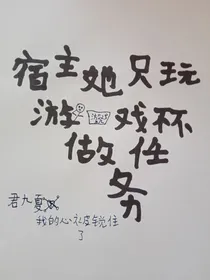 宿主她只玩
游戏不
做任
务
君九夏
我的心被锁住
了